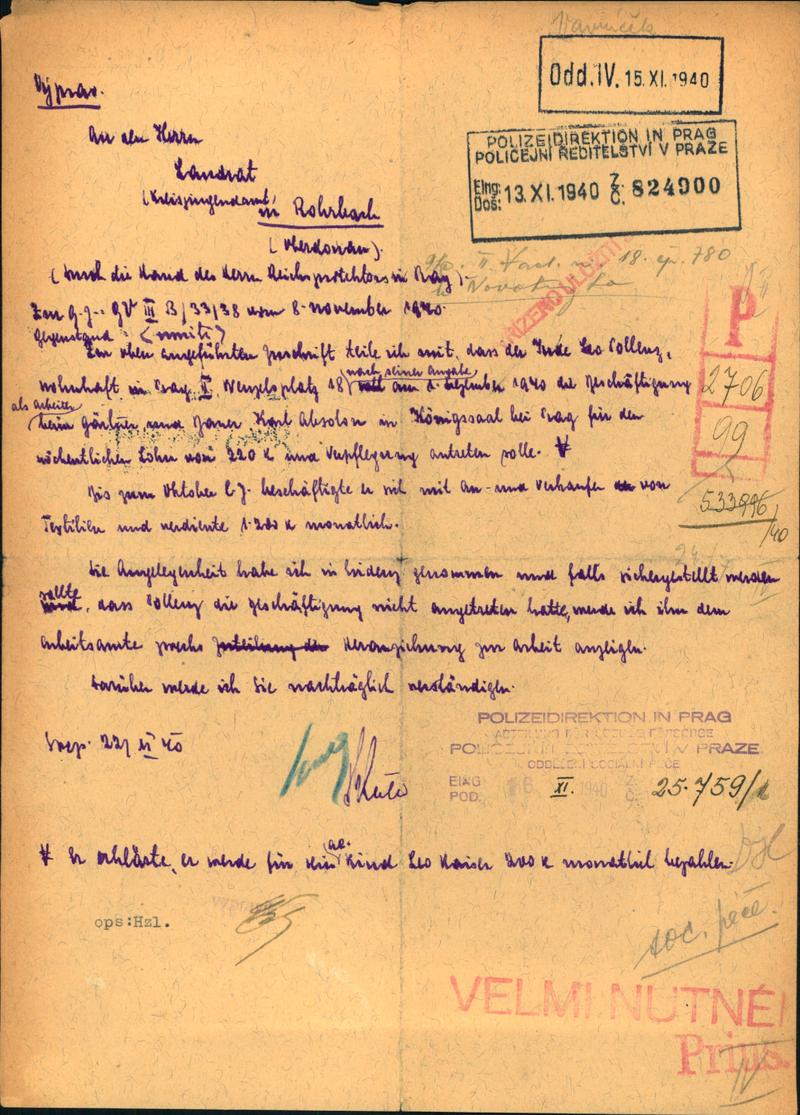 Odd. IV. 15. XI. 1940
POLIZEIDIREKTION IN PRAG
POLICEJNÍ ŘEDITELSTVÍ V PRAZE
Eing: Doš: 13. XI. 1940 Z. Č. 824900
Výprav.
An den Herrn
Landrat
(Kreisjugendamt)
in Rohrbach
(Oberdonau).
(Durch die Hand des Herrn Reichsprotektors in Prag).
Zur G.Z.: GV III B/33/38 vom 8. November 1940.
Gegenstand:
18. 780
Novotný
P
2706
99
533996/40
Zur oben angeführten Zuschrift teile ich mit, dass der Jude Leo Pollenz,
nach seiner Angabe
wohnhaft in Prag II, Wenzelsplatz 18, am 1. Dezember 1940 die Beschäftigung
als Arbeiter
beim Gärtner und Bauer Karl Absolon in Königssaal bei Prag für den
wöchentlichen Lohn von 220 K und Verpflegung antreten solle. ∀
Bis zum Oktober l. J. beschäftigte er sich mit An- und Verkaufen von
Textilien und verdiente 1.200 K monatlich.
Die Angelegenheit habe ich in Evidenz genommen und falls sichergestellt werden
sollte, dass Pollenz die Beschäftigung nicht angetreten hätte, werde ich ihn dem
Arbeitsamte zwecks Zuteilung der Heranziehung zur Arbeit anzeigen.
Darüber werde ich Sie nachträglich verständigen.
22/XI 40
POLIZEIDIREKTION IN PRAG
ABTEILUNG FÜR SOZIALE FÜRSORGE
POLICEJNÍ ŘEDITELSTVÍ V PRAZE
ODDĚLENÍ SOCIÁLNÍ PÉČE
EING. POD. 16 XI. 1940 Z. Č. 25.759/1
∀ Er erklärte, er werde für sein ae. Kind Leo Kaiser 200 K monatlich bezahlen.
ops:Hzl.
soc. péče.
VELMI NUTNÉ!
Prius.
IV